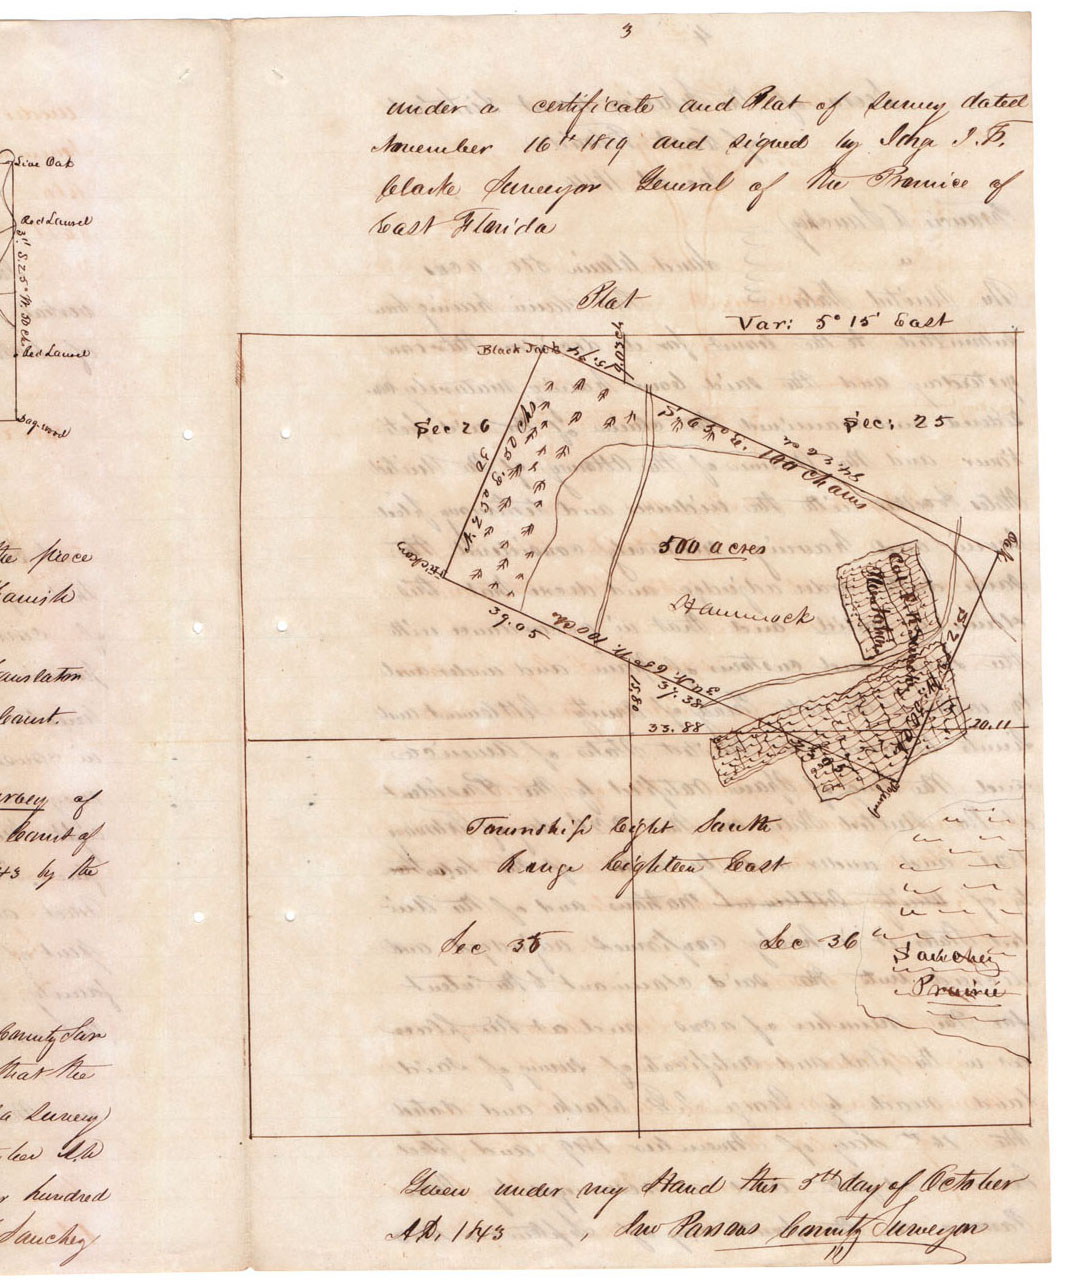 3
under a certificate and Plat of Survey dated
November 16th 1819 and signed by
Clarke Surveyor General of the Province of
East Florida
Plat
Var: 5° 15' East
Black Jack
15.94
Sec 26
Sec: 25
S. 65° E. 100 Chains
N. 25° E. 50 Chs
Hickory
500 acres
Oak
Hammock
Plantation
39.05
N. 100 Chs
37.38
15.80
33.88
20.11
Township Eight South
Range Eighteen East
Sec 35
Sec 36
Sanchez
Prairie
Given under my Hand this 5th day of October
A.D. 1843 , Jno Parsons County Surveyor
Live Oak
Red Laurel
S. 25° W. 50 Ch.
Red Laurel
Dogwood
the piece
anish
anslator
Court.
rvey of
Court of
43 by the
County Sur
that the
a Survey
ber A.D
r hundred
Sanchez